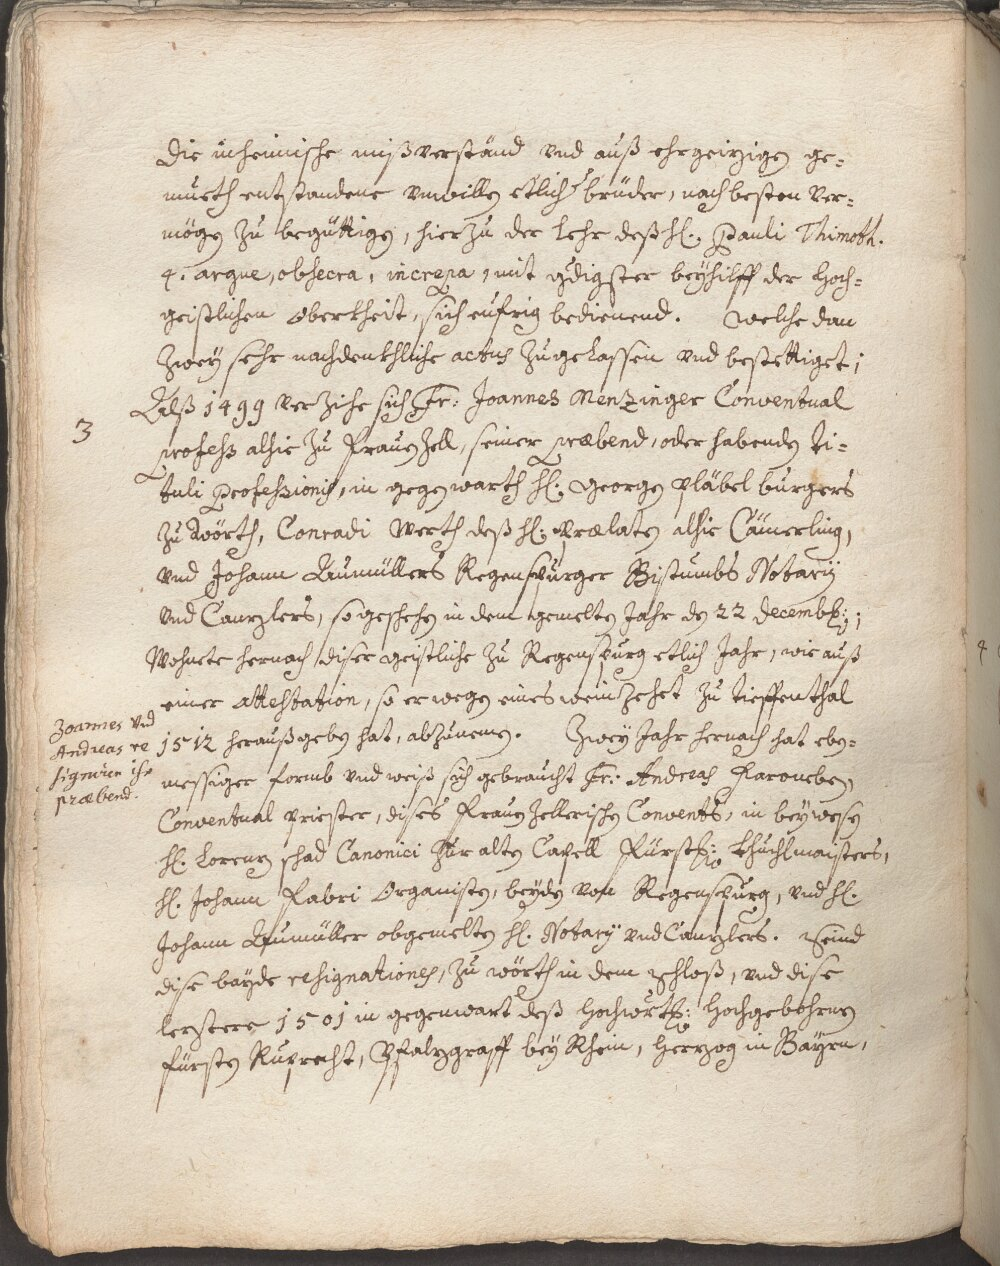 die inheimische mißverständ vnd auß ehrgeizigen ge=
mueth entstandene vnwillen etlicher brüder, nach besten ver=
mögen zu begüttigen, hierzu der lehr deß hl. Pauli Thimoth.
4. argue, obsecra, increpa, mit gdigster beyhilff der hoch=
geistlichen Oberkheit, sich eufrig bedienend. Welche dan
zwey sehr nachdenkhliche actus zugelassen vnd bestettiget;
3
Alß 1499 verzihe sich Fr: Joannes Mentzinger Conventual
profess alhie zu Frauenzell, seiner præbend, oder habenden ti=
tuli Professionis, in gegenwarth H. Georgen Pläbel burgers
zu Wörth, Conradi Werth deß H. Prælaten alhie Cämerling,
vnd Johann Aumüllers Regenspurger Bistumbs Notarÿ
vnd Canzlers, so geschehen in dem gemelten Jahr den 22 decemb:;
Wohnete hernach diser geistliche zu Regenspurg etlich Jahr, wie auß
einer attestation, so er wegen eines weinzehet zu tieffenthal
Joannes vnd
Andreas re
signirn ihr
præbend.
1512 heraußgeben hat, abzunemen. Zwey Jahr hernach hat eben=
messiger formb vnd weiß sich gebraucht Fr: Andreas
Conventual Priester, dises Frauenzellerischen Convents, in beywesen
H. Lorenz schad Canonici Zur alten Capell Fürstl: Khuchlmaisters,
H. Johann Fabri Organisten, beyde von Regenspurg, vnd H.
Johann Aumüller obgemelten H. Notarÿ vnd Canzlers. Seind
dise bayde resignationes, zu wörth in dem schloß, vnd dise
lerstere 1501 in gegenwart deß Hochwürd: Hochgebohrnen
fürsten Ruprecht, Pfalzgraff bey Rhein, Herzog in Bayrn,